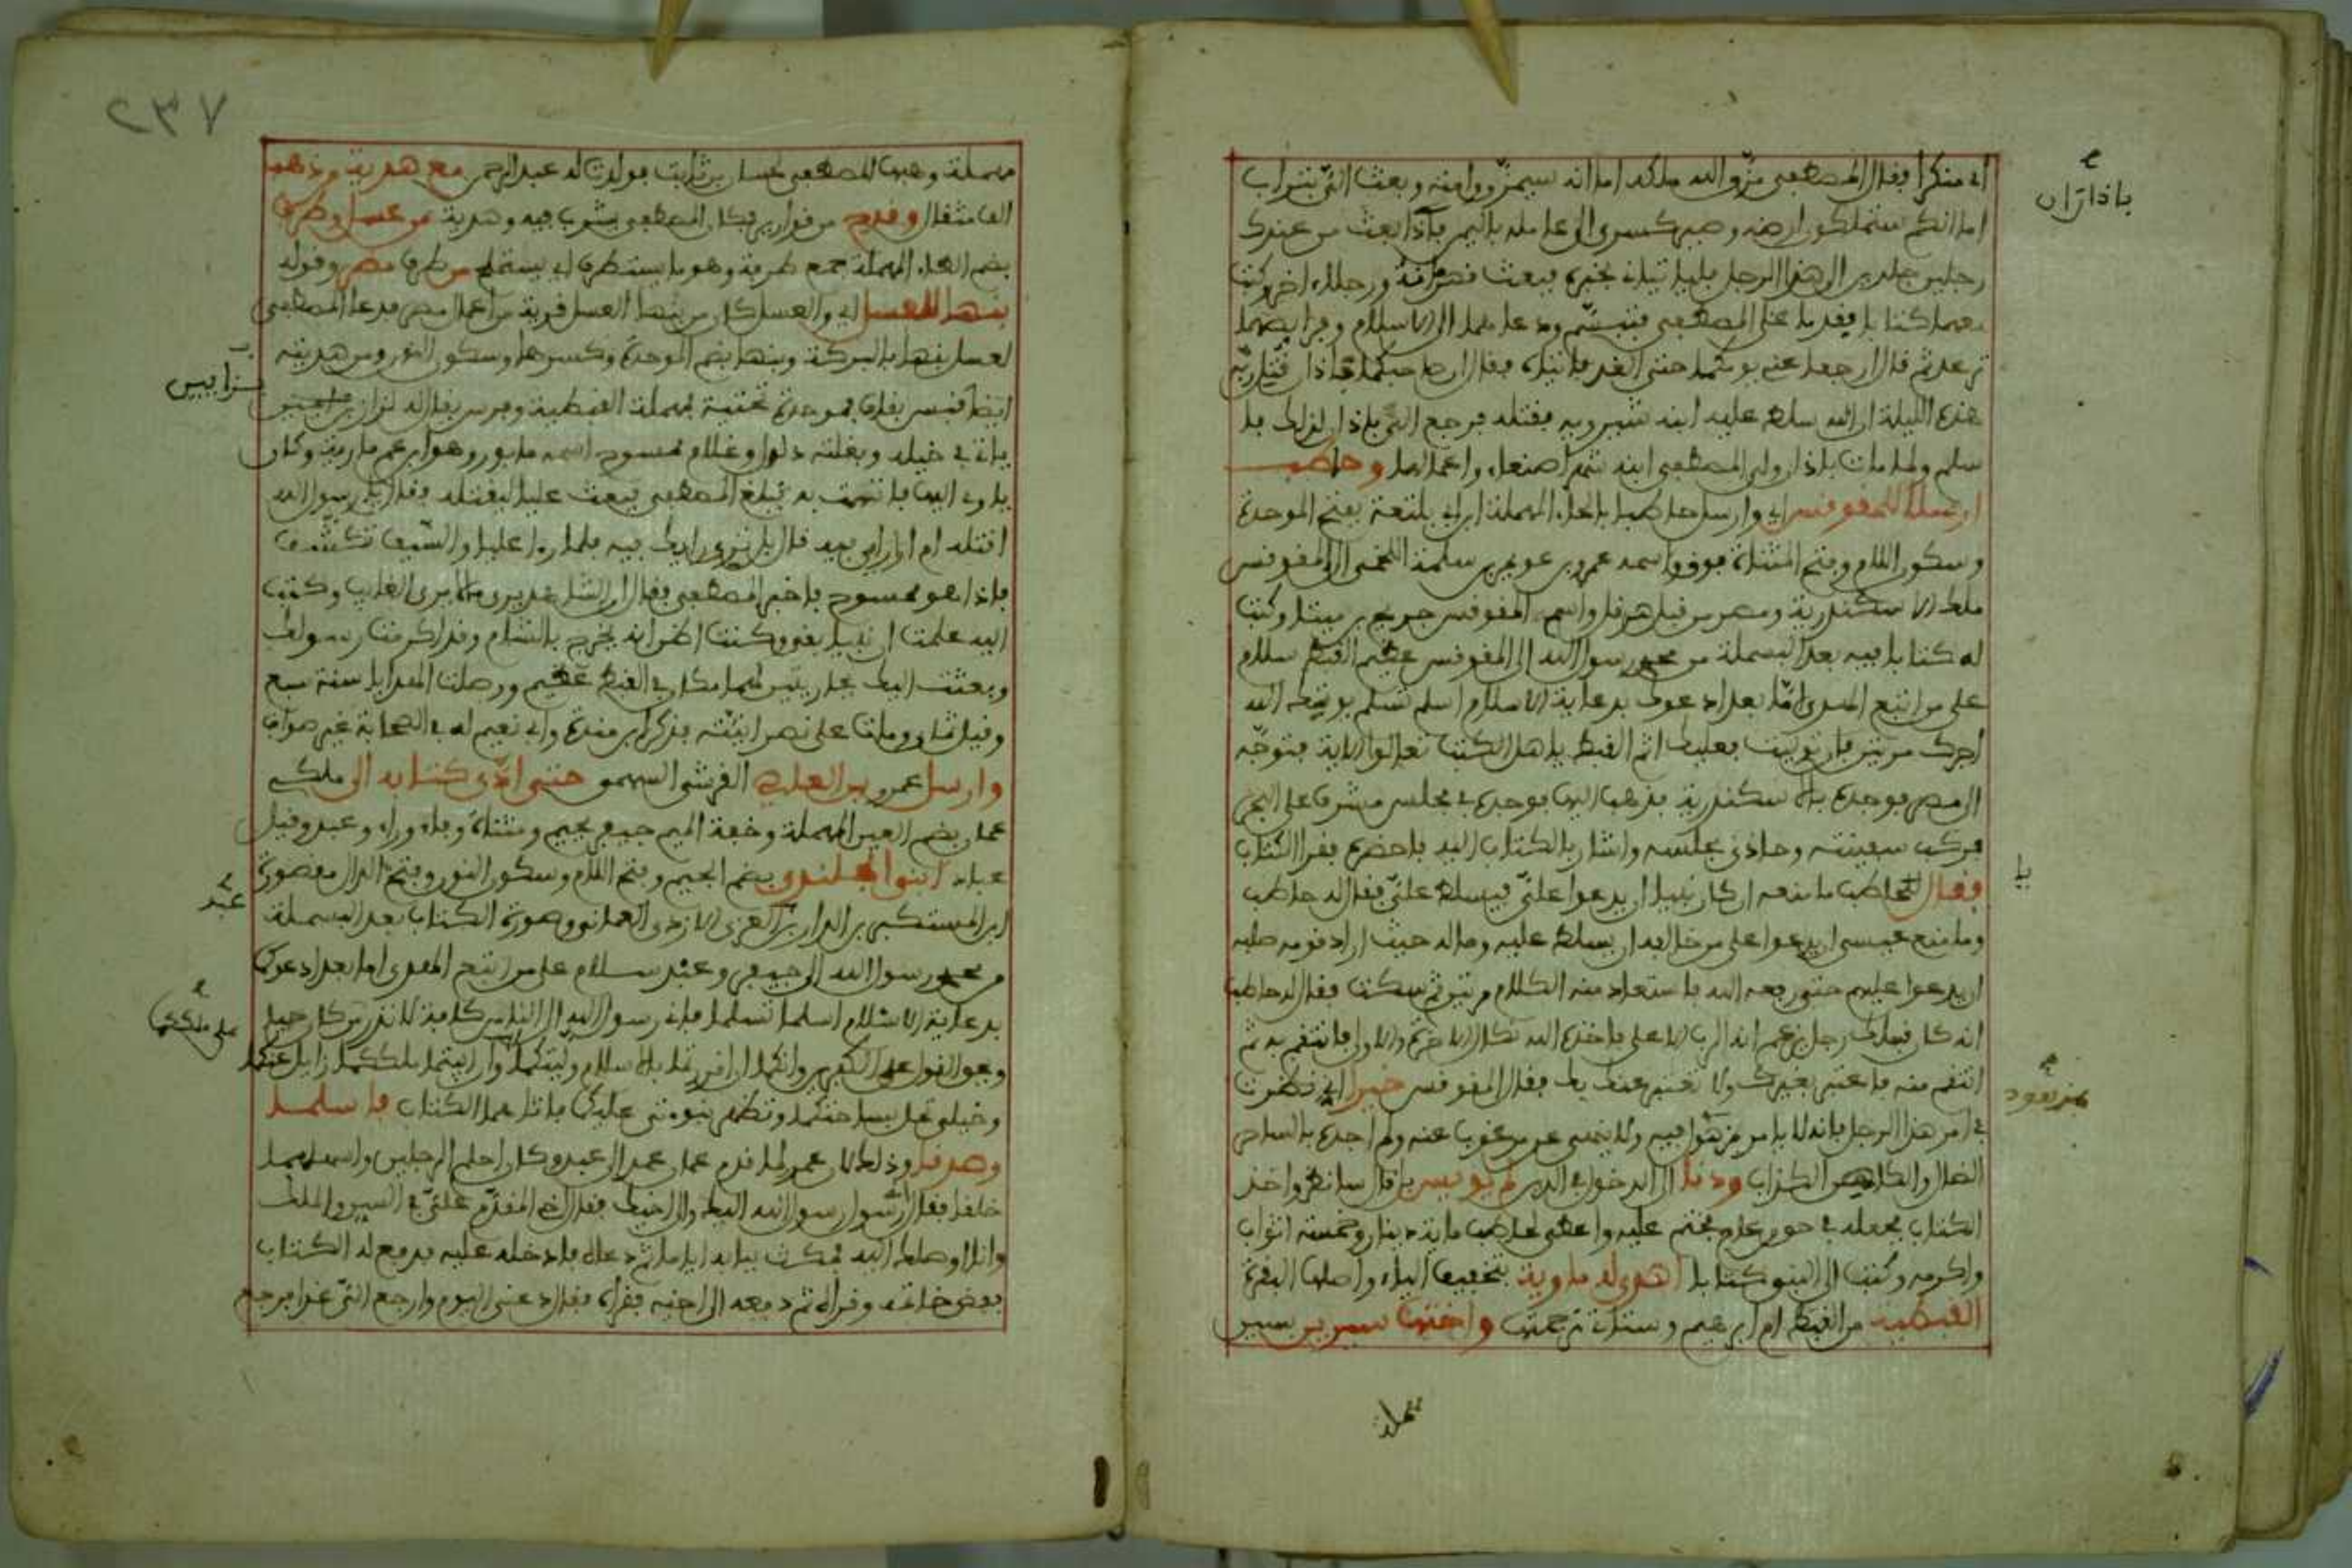 اي منكرا فقال المصطفى مزق الله ملكه اما انه سيمزق وامته وبعث الي بتراب
اما انكم ستملكون ارضه وصير كسرى الى عامله باليمن باذا بعث من عندك
رجلين جلدين الى هذا الرجل فليا تياني بخبره فبعث قهرمانه ورجلا اخر وكتب
معهما كتابا فقدما على المصطفى فتبسم ودعاهما الى الاسلام وفرايصهما
ترعد ثم قال ارجعا عني يومكما حتى الغد فاتياه فقال ان صاحبكما قتل ربه
هذه الليلة ان الله سلط عليه ابنه شيرويه فقتله فرجع الى باذان لذلك فا
سلم ولما مات باذان ولى المصطفى ابنه شهرا صنعاء واعمالها وحاطب
ارسله للمقوقس اي وارسل حاطبا بالحاء المهملة ابن ابي بلتعة بفتح الموحدة
وسكون اللام وفتح المثناة فوق واسمه عمرو بن عويمر بن سلمة اللخمي الى المقوقس
ملك الاسكندرية ومصر من قبل هرقل واسم المقوقس جريج بن مينا وكتب
له كتابا فيه بعد البسملة من محمد رسول الله الى المقوقس عظيم القبط سلام
على من اتبع الهدى اما بعد ادعوك بدعاية الاسلام اسلم تسلم يوتك الله
اجرك مرتين فان توليت فعليك اثم القبط ياهل الكتب تعالوا الاية فتوجه
الى مصر فوجده بالاسكندرية فذهب اليها فوجده في مجلس مشرف على البحر
فركب سفينته وحاذى مجلسه واشار بالكتاب اليه فاحضره فقرا الكتاب
فقال لحاطب ما منعه ان كان نبيا ان يدعوا علي فيسلط علي فقال له حاطب
وما منع عيسى ان يدعوا على من خالفه ان يسلط عليه وماله حيث اراد قومه صلبه
ان يدعوا عليهم حتى رفعه الله فاستعاد منه الكلام مرتين ثم سكت فقال له حاطب
انه كان قبلك رجل زعم انه الرب الاعلى فاخذه الله نكال الاخرة والاولى فانتقم به ثم
انتقم منه فاعتبر بغيرك ولا تعتبر غيرك بك فقال المقوقس خيرا اي نظرت
في امر هذا الرجل فانه لا يامر بمزهود فيه ولا ينهى عن مرغوب عنه ولم اجده بالساحر
الضال والكاهن الكذاب ودنا الى الدخول في الدين لم يويس بل قال سانظر واخذ
الكتاب فجعله في حق عاج مختم عليه واعطى لحاطب ماية دينار وخمسة اثواب
واكرمه وكتب الى النبي كتابا اهدى له مارية بتخفيف الياء واصلها البقرة
القبطية من القبط ام ابرهيم وستات ترجمتها واختها سيرين سين
باذان
يا
بمزهود
مهملة
٢٣٧
مهملة وهبها المصطفى لحسان بن ثابت فولدت له عبد الرحمن مع هدية وذهب
الف مثقال وقدح من قوارير فكان المصطفى يشرب فيه وهدية من عسل وطرف
بضم الطاء المهملة جمع طرفة وهو ما يستطرف اي يستملح من طرف مصر وقوله
بنها العسل اي والعسل كان من بنها العسل قرية من اعمال مصر فدعا المصطفى
لعسل بنها بالبركة وبنها بضم الموحدة وكسرها وسكون النون ومن هديته
باوى اليها فاتهمت به فبلغ المصطفى فبعث عليا ليقتله فقال يا رسول الله
فاذا هو ممسوح فاخبر المصطفى فقال ان الشاهد يرى ما لا يرى الغايب وكتب
اليه علمت ان نبيا بقي وكنت اظن انه يخرج بالشام وقد اكرمت رسولك
وبعثت اليك بجاريتين لهما مكان في القبط عظيم ووصلت الهدايا سنة سبع
وقيل ثمان ومات على نصرانيته فذكر ابن مندة وابي نعيم له في الصحابة غير صواب
وارسل عمرو بن العاصي القرشي السهمي حتى ادى كتابه الى ملكي
عمان بضم العين المهملة وخفة الميم جيفر بجيم ومثناة وفاء وراء وعبد وقيل
عباد ابنو الجلندى بضم الجيم وفتح اللام وسكون النون وفتح الدال مقصورة
من محمد رسول الله الى جيفر وعبد سلام على من اتبع الهدى اما بعد ادعوكما
بدعاية الاسلام اسلما تسلما فاني رسول الله الى الناس كافة لانذر من كان حيا
ويحق القول على الكفرين وانكما ان اقررتما بالاسلام وليتكما وان ابيتما فملككما زايل عنكما
وخيلي تحل بساحتكما وتظهر نبوءتي عليكما فاتاهما الكتاب فاسلما
وصدقا وذلك لان عمرا لما قدم عمان عمد الى عبد وكان احلم الرجلين واسهلهما
خلقا فقال اني رسول رسول الله اليك والى اخيك فقال اخي المقدم علي في السن والملك
وانا اوصلك اليه فمكث ببابه اياما ثم دعاه فادخله عليه فدفع له الكتاب
ففض خاتمه وقراه ثم دفعه الى اخيه فقراه فقال دعني اليوم وارجع الي غدا فرجع
عبد